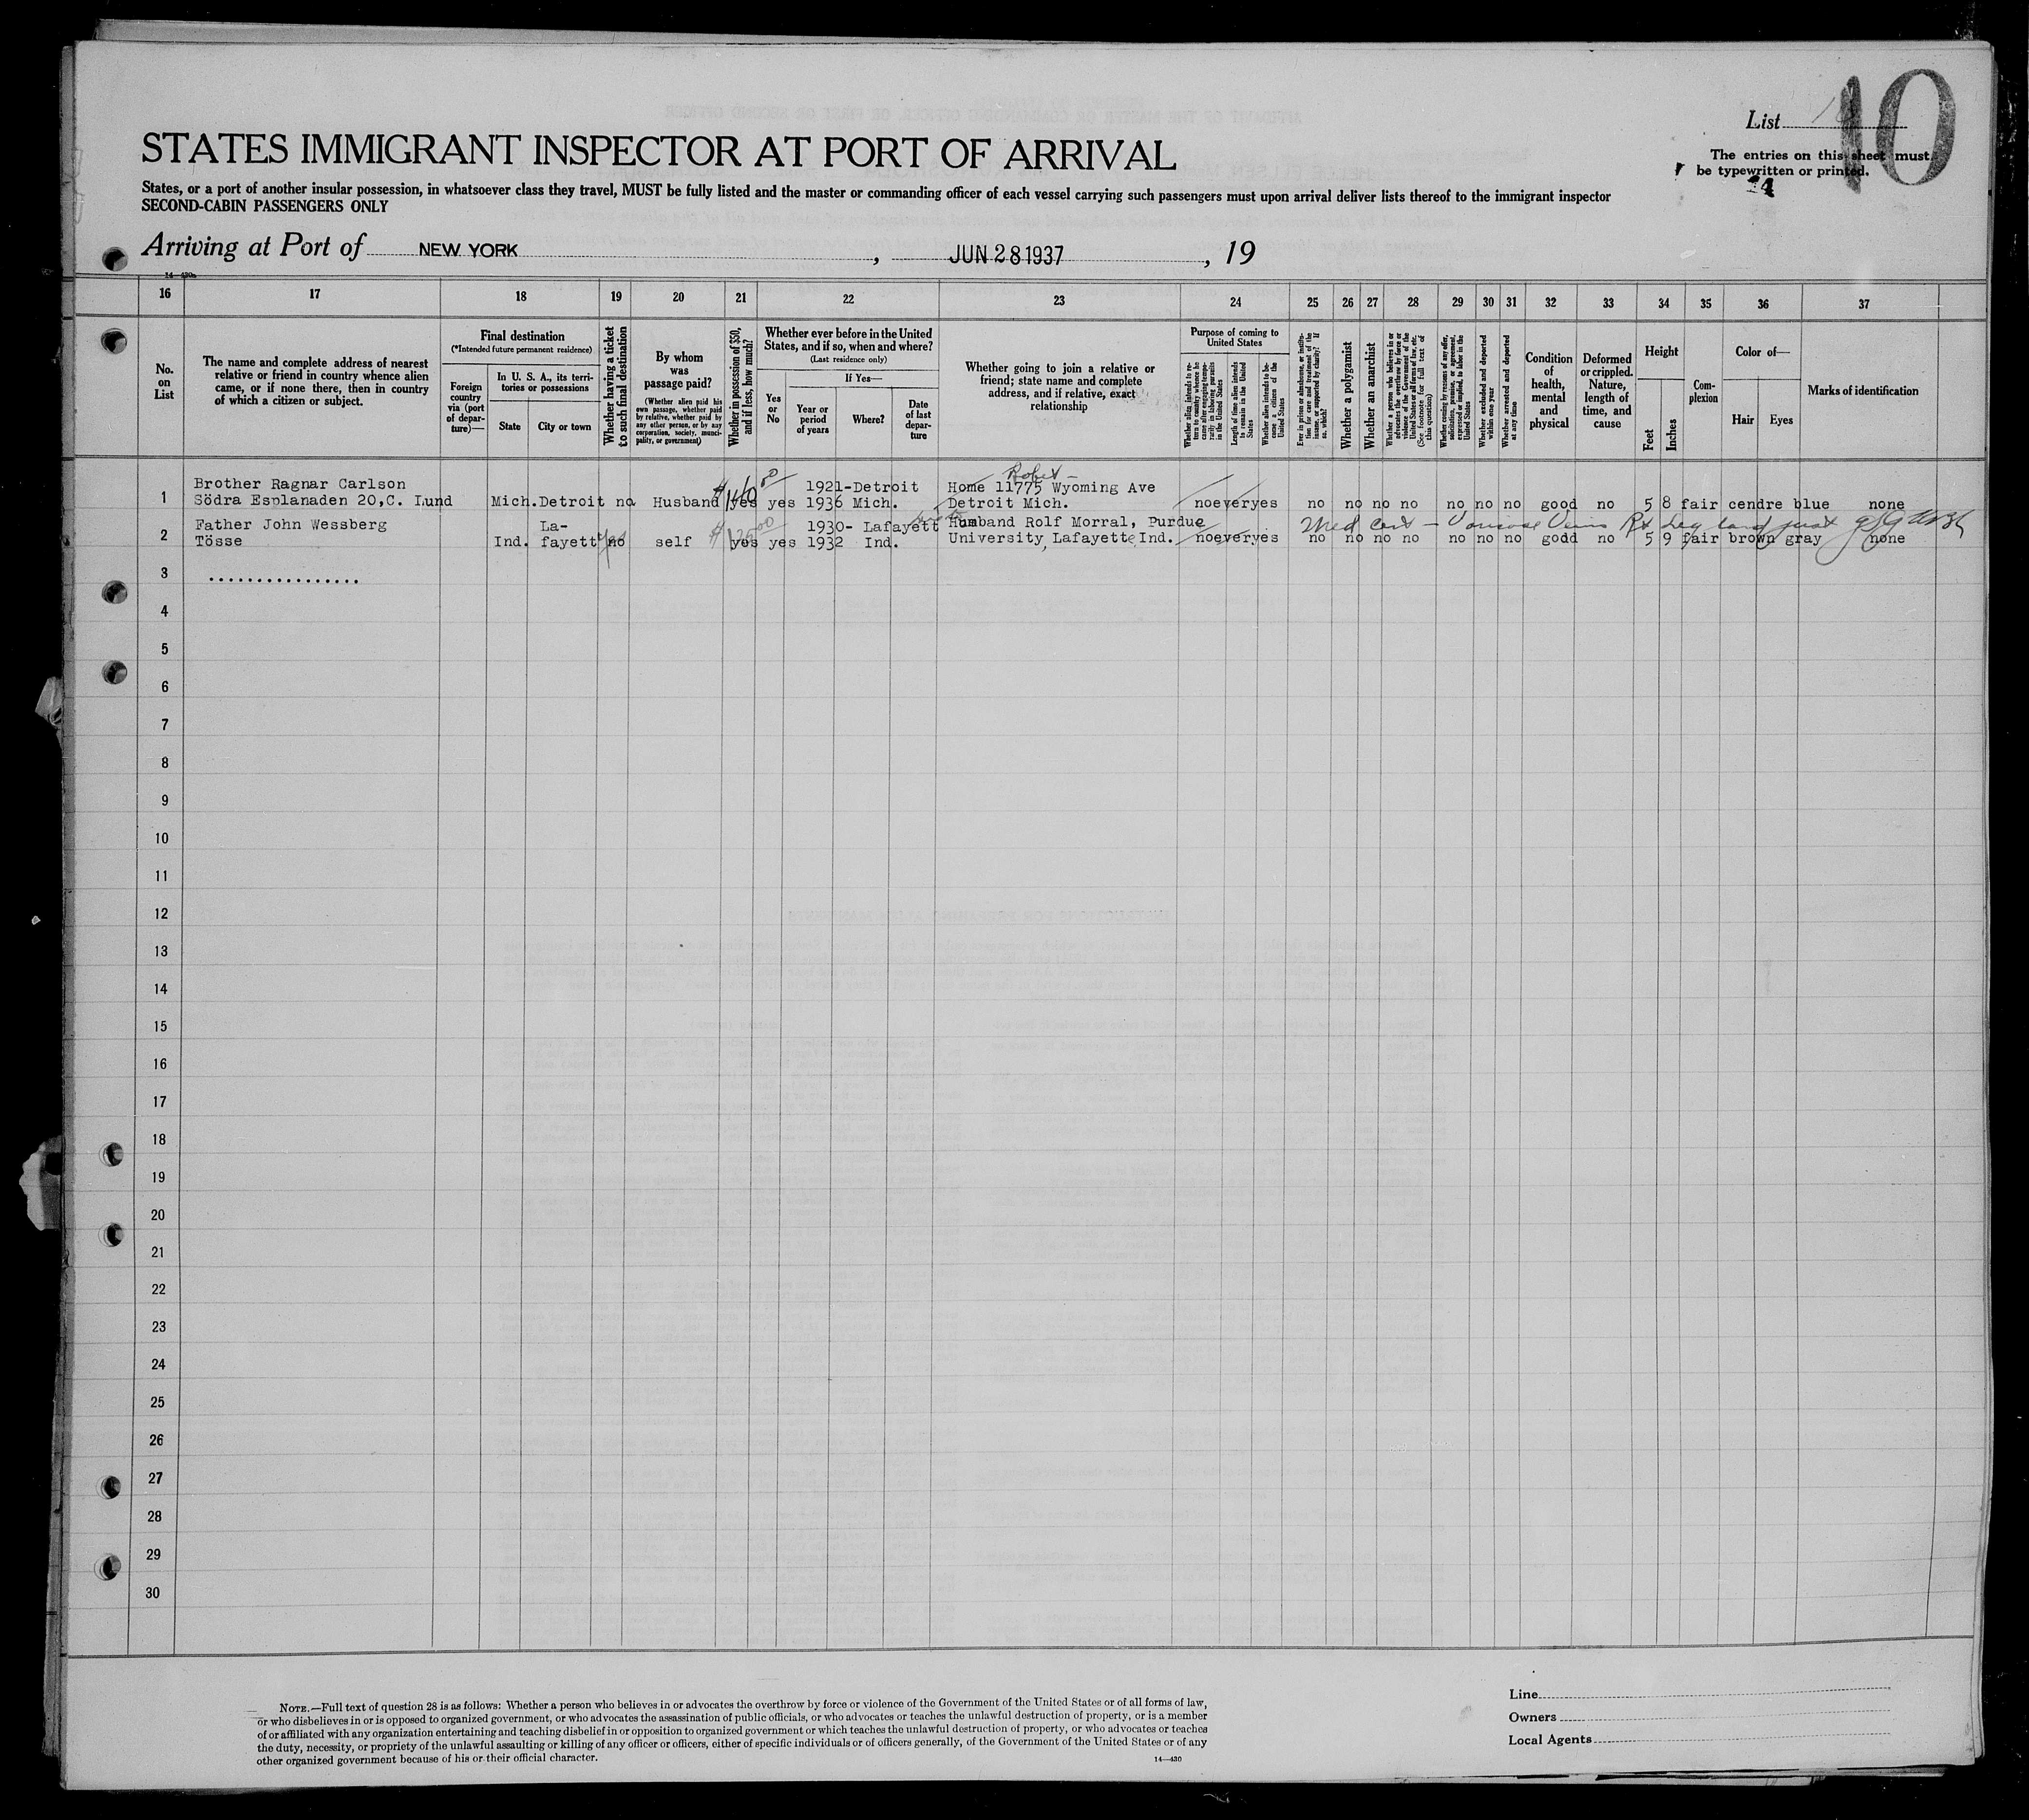 List
10
The entries on this sheet must
be typewritten or printed.
STATES IMMIGRANT INSPECTOR AT PORT OF ARRIVAL
States, or a port of another insular possession, in whatsoever class they travel, MUST be fully listed and the master or commanding officer of each vessel carrying such passengers must upon arrival deliver lists thereof to the immigrant inspector
SECOND-CABIN PASSENGERS ONLY
Arriving at Port of NEW YORK, JUN 28 1937, 19
14-430a
16 17 18 19 20 21 22 23 24 25 26 27 28 29 30 31 32 33 34 35 36 37
No. on List
The name and complete address of nearest relative or friend in country whence alien came, or if none there, then in country of which a citizen or subject.
Final destination
(*Intended future permanent residence)
Foreign country via (port of departure)—
In U. S. A., its territories or possessions
State
City or town
Whether having a ticket to such final destination
By whom was passage paid?
(Whether alien paid his own passage, whether paid by relative, whether paid by any other person, or by any corporation, society, municipality, or government)
Whether in possession of $50, and if less, how much?
Whether ever before in the United States, and if so, when and where?
(Last residence only)
Yes or No
If Yes—
Year or period of years
Where?
Date of last departure
Whether going to join a relative or friend; state name and complete address, and if relative, exact relationship
Purpose of coming to United States
Whether alien intends to return to country whence he came after engaging temporarily in laboring pursuits in the United States
Length of time alien intends to remain in the United States
Whether alien intends to become a citizen of the United States
Ever in prison or almshouse, or institution for care and treatment of the insane, or supported by charity? If so, which?
Whether a polygamist
Whether an anarchist
Whether a person who believes in or advocates the overthrow by force or violence of the Government of the United States or all forms of law, etc. (See footnote for full text of this question)
Whether coming by reason of any offer, solicitation, promise, or agreement, expressed or implied, to labor in the United States
Whether excluded and deported within one year
Whether arrested and deported at any time
Condition of health, mental and physical
Deformed or crippled. Nature, length of time, and cause
Height
Feet
Inches
Complexion
Color of—
Hair
Eyes
Marks of identification
Robert
Brother Ragnar Carlson 1921-Detroit Home 11775 Wyoming Ave
1 Södra Esplanaden 20,C. Lund Mich. Detroit no Husband yes yes 1936 Mich. Detroit Mich. no ever yes no no no no no no no good no 5 8 fair cendre blue none
Father John Wessberg La- 1930- Lafayett Husband Rolf Morral, Purdue
Med Cert - Varicose Veins Rt Leg
2 Tösse Ind. fayett no yes self yes yes 1932 Ind. University, Lafayette Ind. no ever yes no no no no no no no godd no 5 9 fair brown gray none
3 ................
4
5
6
7
8
9
10
11
12
13
14
15
16
17
18
19
20
21
22
23
24
25
26
27
28
29
30
NOTE.—Full text of question 28 is as follows: Whether a person who believes in or advocates the overthrow by force or violence of the Government of the United States or of all forms of law,
or who disbelieves in or is opposed to organized government, or who advocates the assassination of public officials, or who advocates or teaches the unlawful destruction of property, or is a member
of or affiliated with any organization entertaining and teaching disbelief in or opposition to organized government or which teaches the unlawful destruction of property, or who advocates or teaches
the duty, necessity, or propriety of the unlawful assaulting or killing of any officer or officers, either of specific individuals or of officers generally, of the Government of the United States or of any
other organized government because of his or their official character.
14—430
Line
Owners
Local Agents